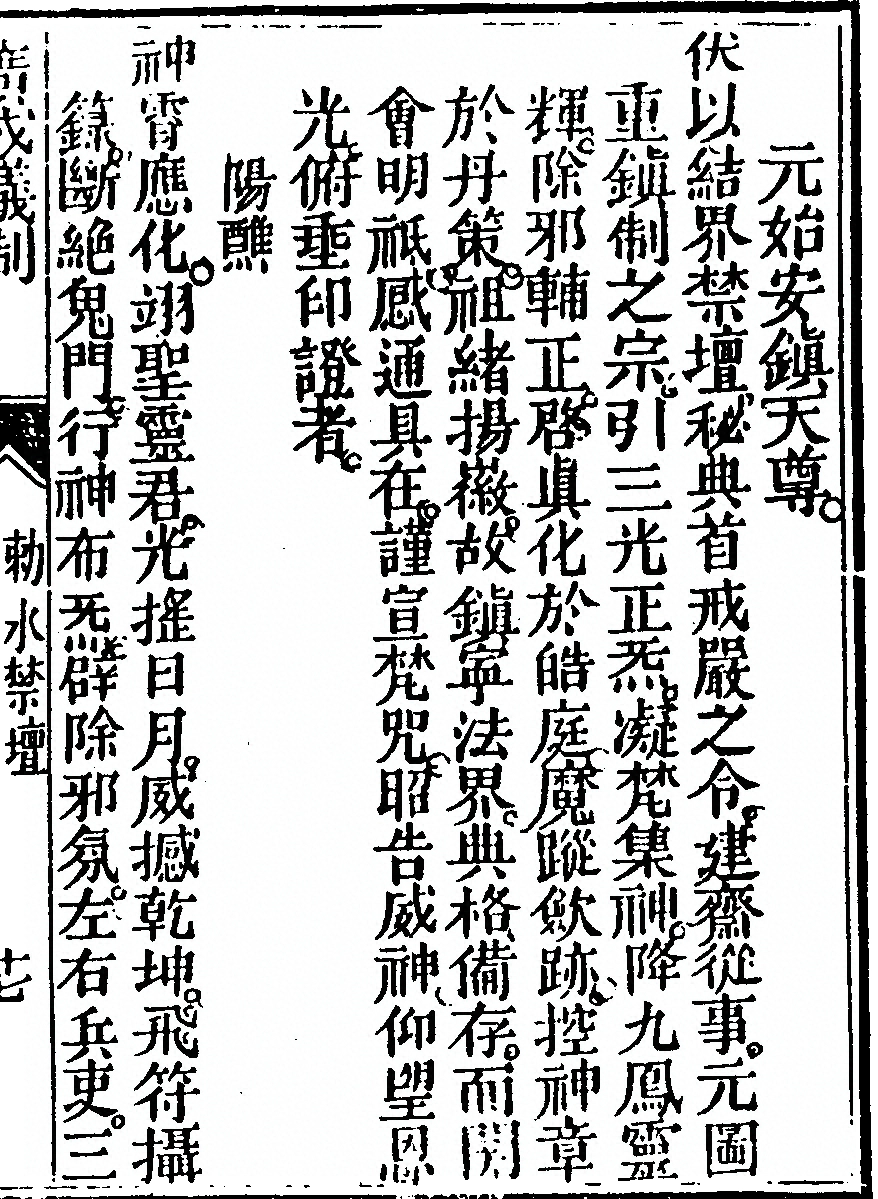 元始安鎮天尊。
伏以結界禁壇秘典首戒嚴之令。建齋從事。元圖
重鎮制之宗。引三光正炁。凝梵集神。降九鳳靈
輝。除邪輔正。啓眞化於皓庭。魔蹤斂跡。控神章
於丹策。祖緒揚徽。故鎮寜法界。典格備存。而開
會明祇。感通具在。謹宣梵咒。昭告威神。仰望恩
光。俯垂印證者。
陽醮
神霄應化。翊聖靈君。光搖日月。威撼乾坤。飛符攝
籙。斷絕鬼門。行神布炁。辟除邪氛。左右兵吏。三
儀制
勅水禁壇
十七